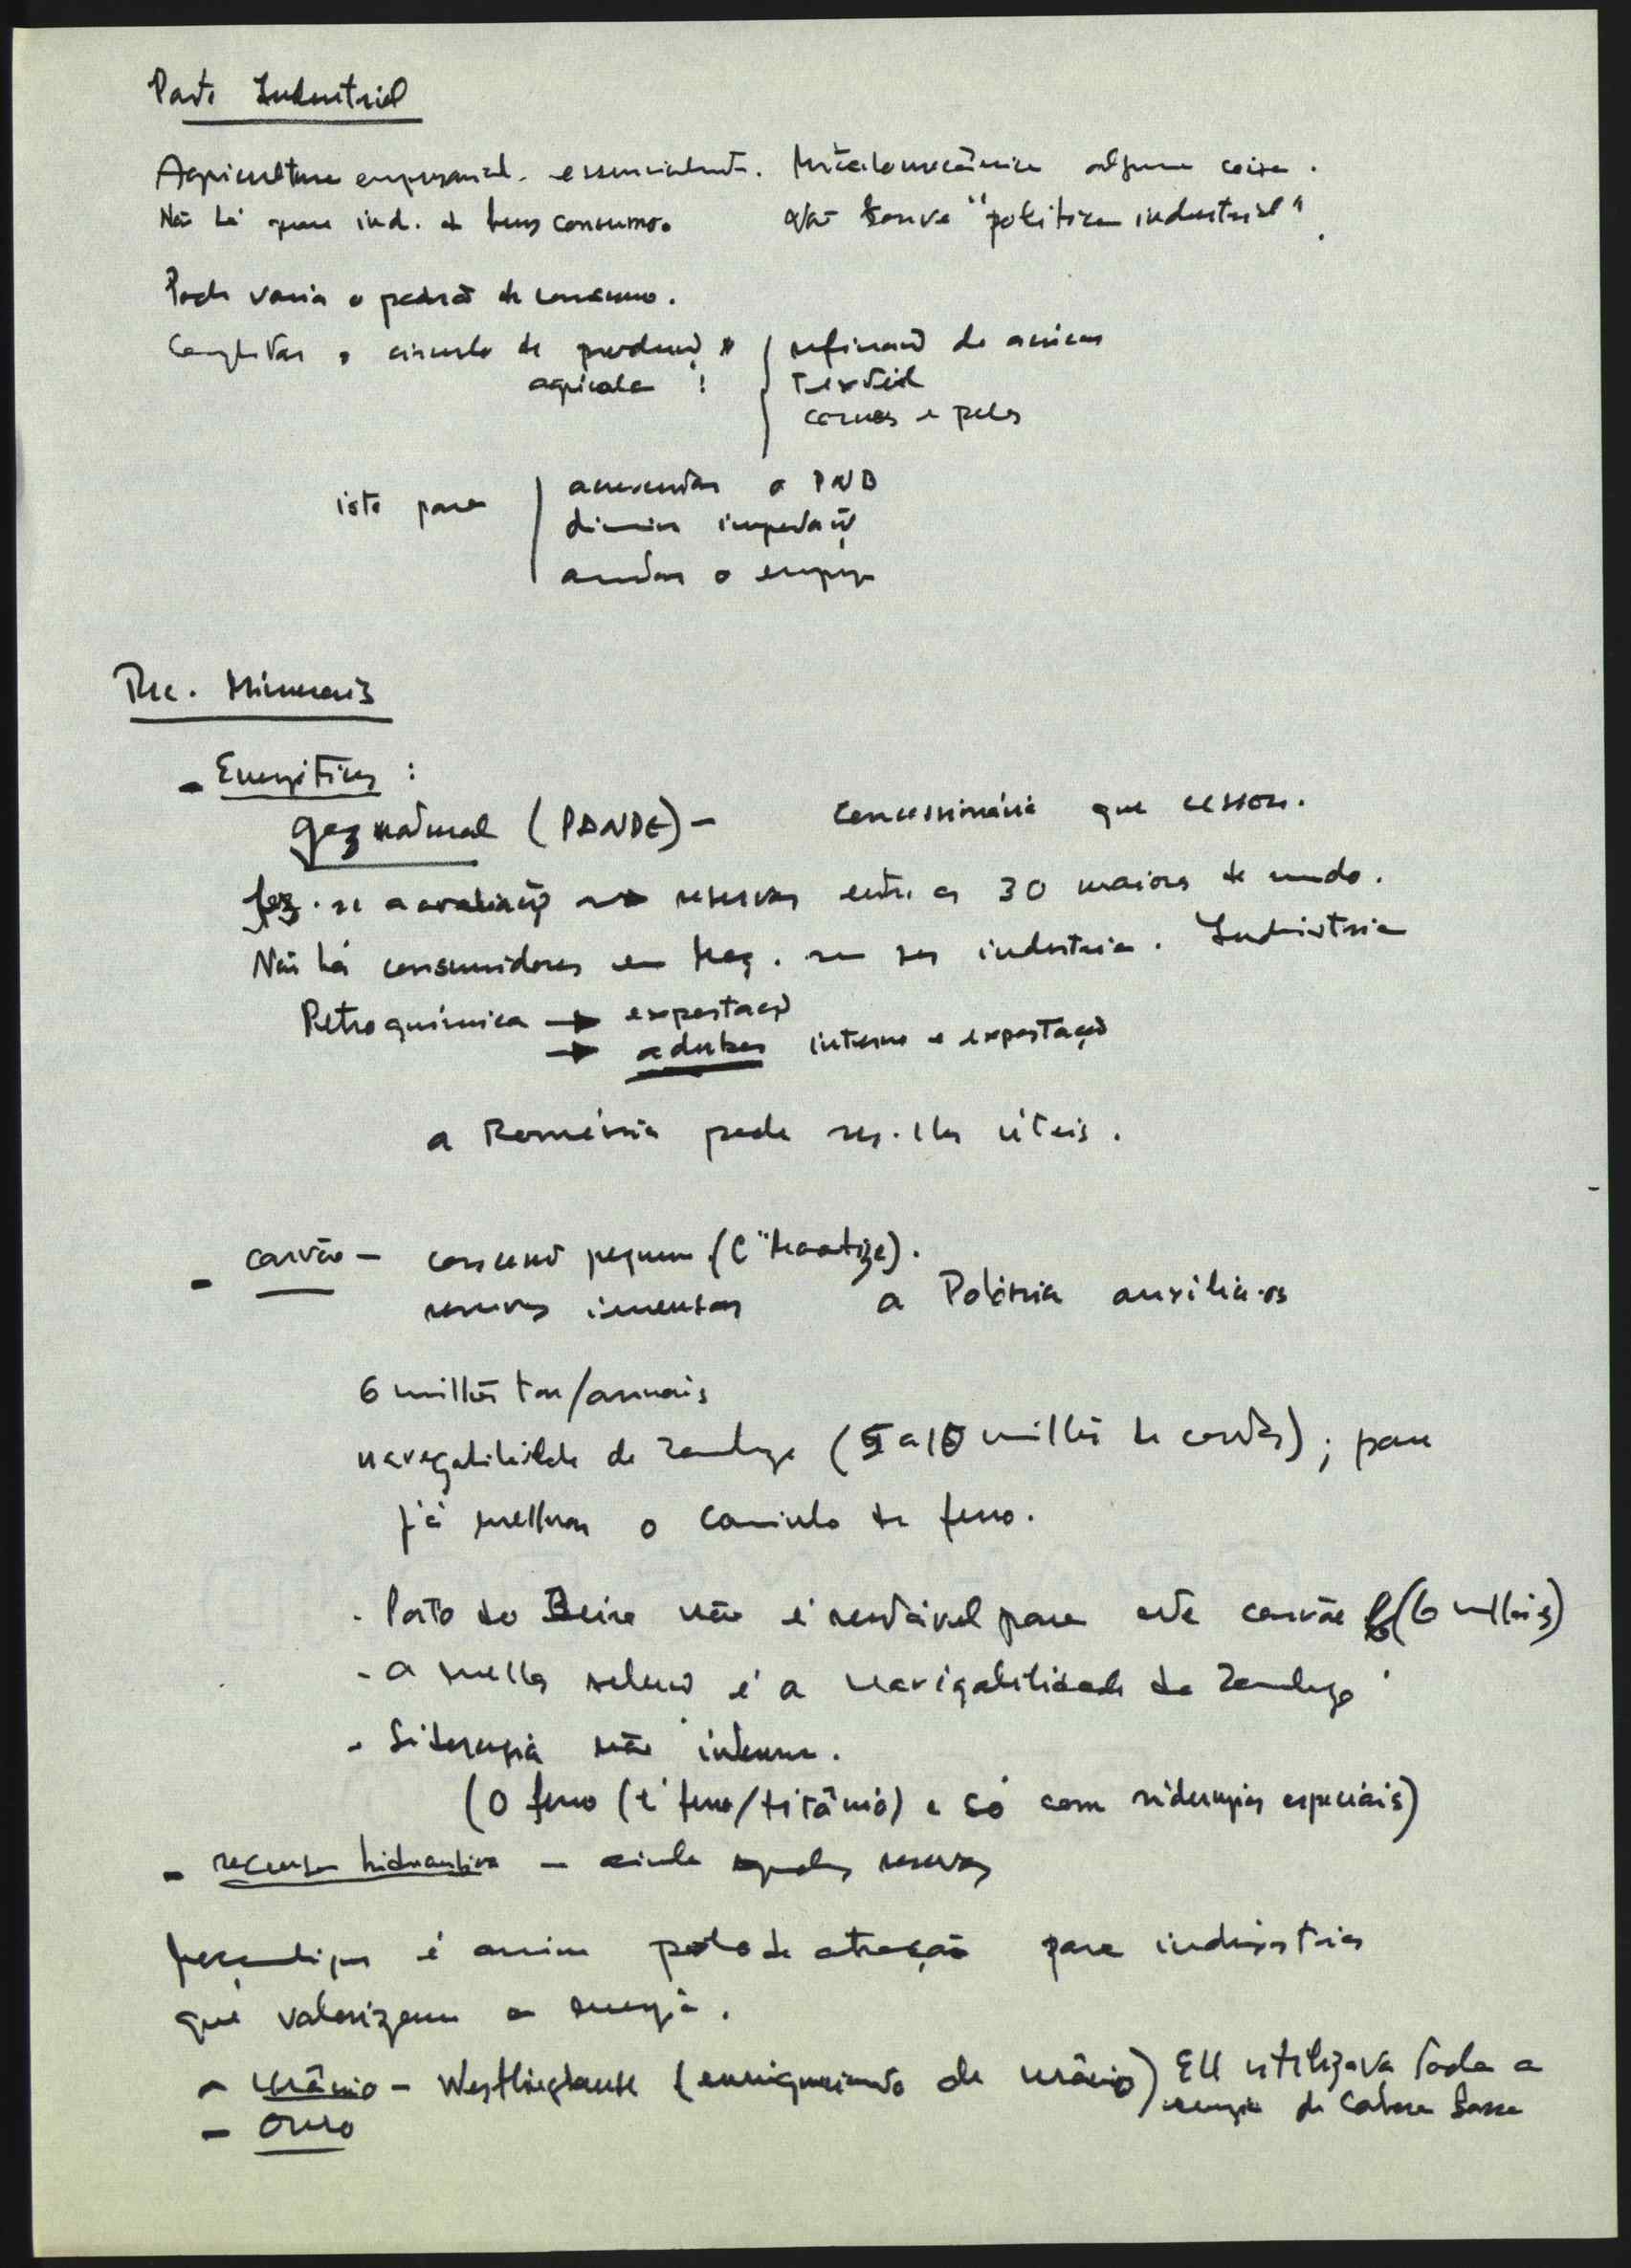 Parte Industrial
Agricultura empresarial essencialmente. Metalomecânica alguma coisa.
Não há quase ind. de bens consumo. Não houve "politica industrial".
Pode variar o padrão de consumo.
Completar o circuito de produção refinação de açúcar
agricola : textil
carnes e peles
isto para acrescentar o PNB
diminuir importação
aumentar o emprego
Rec. Minerais
- Energéticos :
gaz natural (PANDE) - Concessionária que cessou.
fez-se a avaliação reservas entre as 30 maiores do mundo.
Não há consumidores em Moç. sem ser industria. Indústria
Petroquímica → exportação
→ adubos interno e exportação
a Roménia pode ser-lhes úteis.
- carvão - concessão pequena (Cª Moatize).
reservas imensas a Polónia auxilia-os
6 milhões ton/anuais
navegabilidade do Zambeze (5 a 10 milhões de contos); para
já melhorar o Caminho de ferro.
- Porto da Beira não é rentável para este carvão (6 milhões)
- a melhor solução é a navegabilidade do Zambeze
- Siderurgia não interessa.
(O ferro (é ferro/titânio) e só com siderurgias especiais)
- recursos hidraulicos - ainda grandes reservas
Moçambique é assim polo de atração para indústrias
que valorizem a energia.
- Urânio - Westinghouse (enriquecimento de urânio) Ell utilizava toda a
energia de Cabora Bassa
- Ouro